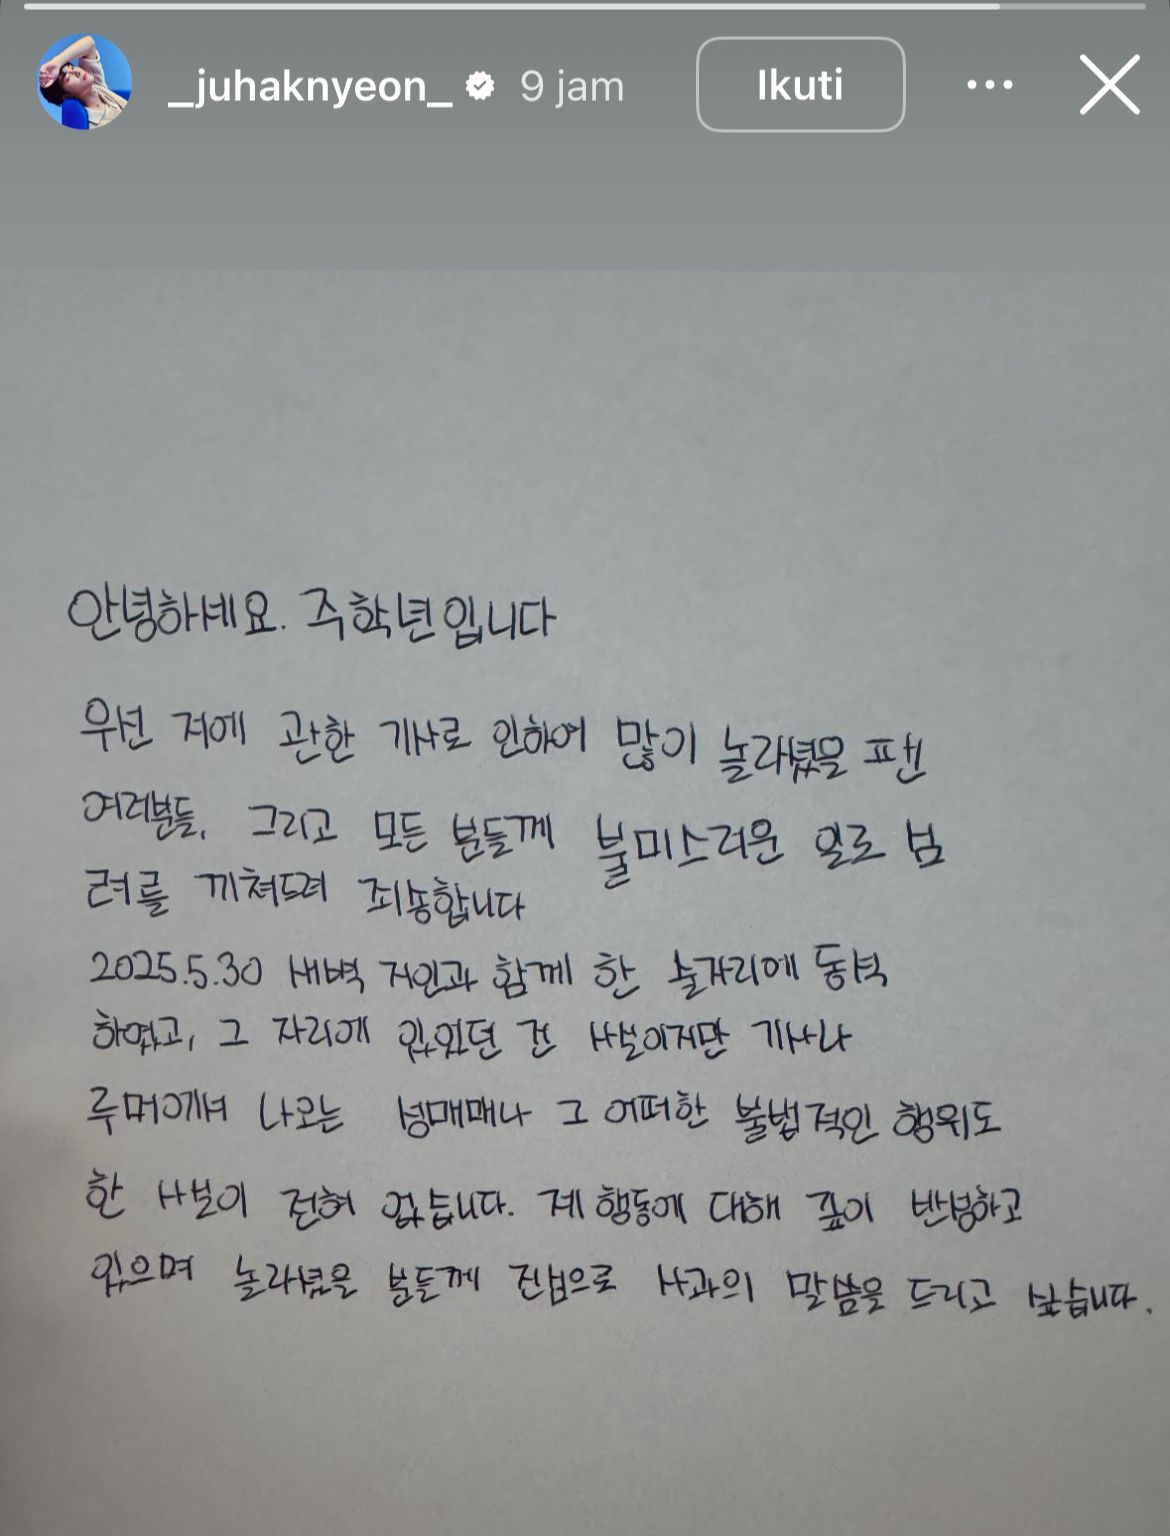 _juhaknyeon_ 9 jam Ikuti
안녕하세요. 주학년입니다
우선 저에 관한 기사로 인하여 많이 놀라셨을 팬
여러분들, 그리고 모든 분들께 불미스러운 일로 심
려를 끼쳐드려 죄송합니다
2025.5.30 새벽 지인과 함께 한 술자리에 동석
하였고, 그 자리에 있었던 건 사실이지만 기사나
루머에서 나오는 성매매나 그 어떠한 불법적인 행위도
한 사실이 전혀 없습니다. 제 행동에 대해 깊이 반성하고
있으며 놀라셨을 분들께 진심으로 사과의 말씀을 드리고 싶습니다.